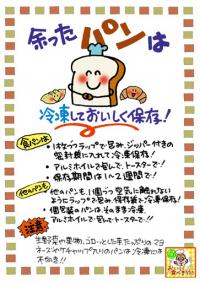 余ったパンは
冷凍しておいしく保存!
食パンは
・1枚ずつラップで包み、ジッパー付きの
密封袋に入れて冷凍保存!
・アルミホイルで包んで、トースターで!
・保存期間は1~2週間で!
他のパンも
・他のパンも、1個づつ空気に触れない
ようにラップで包み、保存袋で冷凍保存!
・個包装のパンは、そのまま冷凍、
アルミホイルで包んで・トースターで!!
注意
生野菜や果物、ゴロッとした果たっぷりのマヨ
ネーズやケチャップ入りのパンは冷凍には
不向き!!